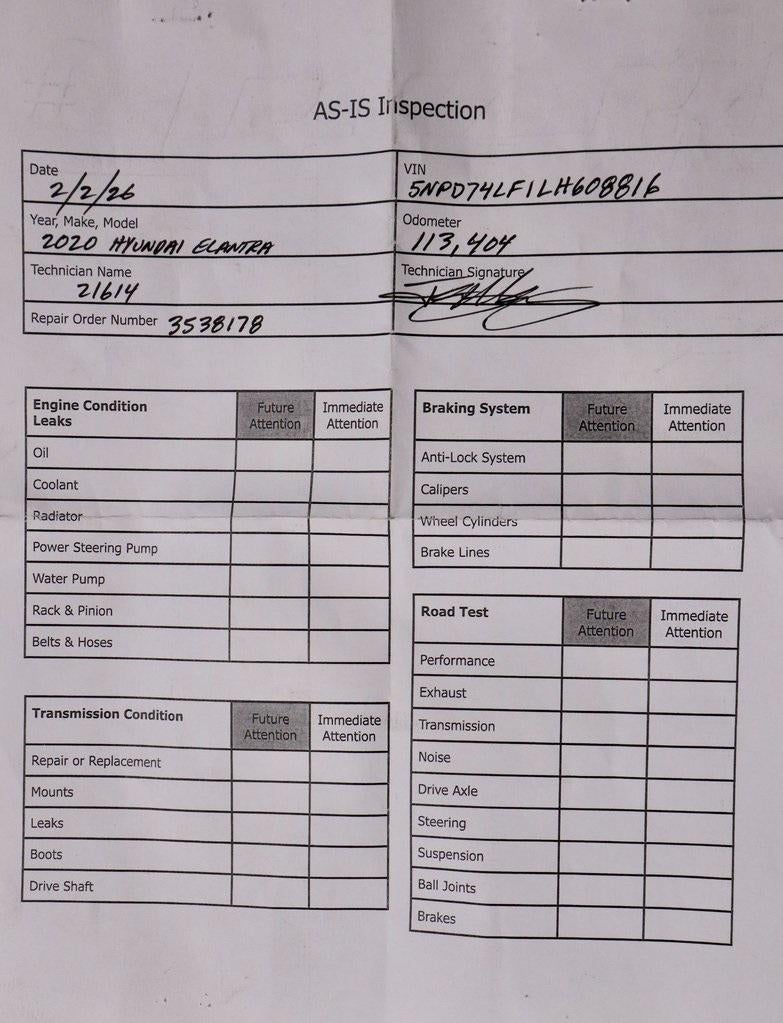 AS-IS Inspection
Date
2/2/26
VIN
5NPD74LF1LH608816
Year, Make, Model
2020 HYUNDAI ELANTRA
Odometer
113,404
Technician Name
21614
Technician Signature
Repair Order Number 3538178
Engine Condition
Leaks
Future
Attention
Immediate
Attention
Oil
Coolant
Radiator
Power Steering Pump
Water Pump
Rack & Pinion
Belts & Hoses
Transmission Condition
Future
Attention
Immediate
Attention
Repair or Replacement
Mounts
Leaks
Boots
Drive Shaft
Braking System
Future
Attention
Immediate
Attention
Anti-Lock System
Calipers
Wheel Cylinders
Brake Lines
Road Test
Future
Attention
Immediate
Attention
Performance
Exhaust
Transmission
Noise
Drive Axle
Steering
Suspension
Ball Joints
Brakes